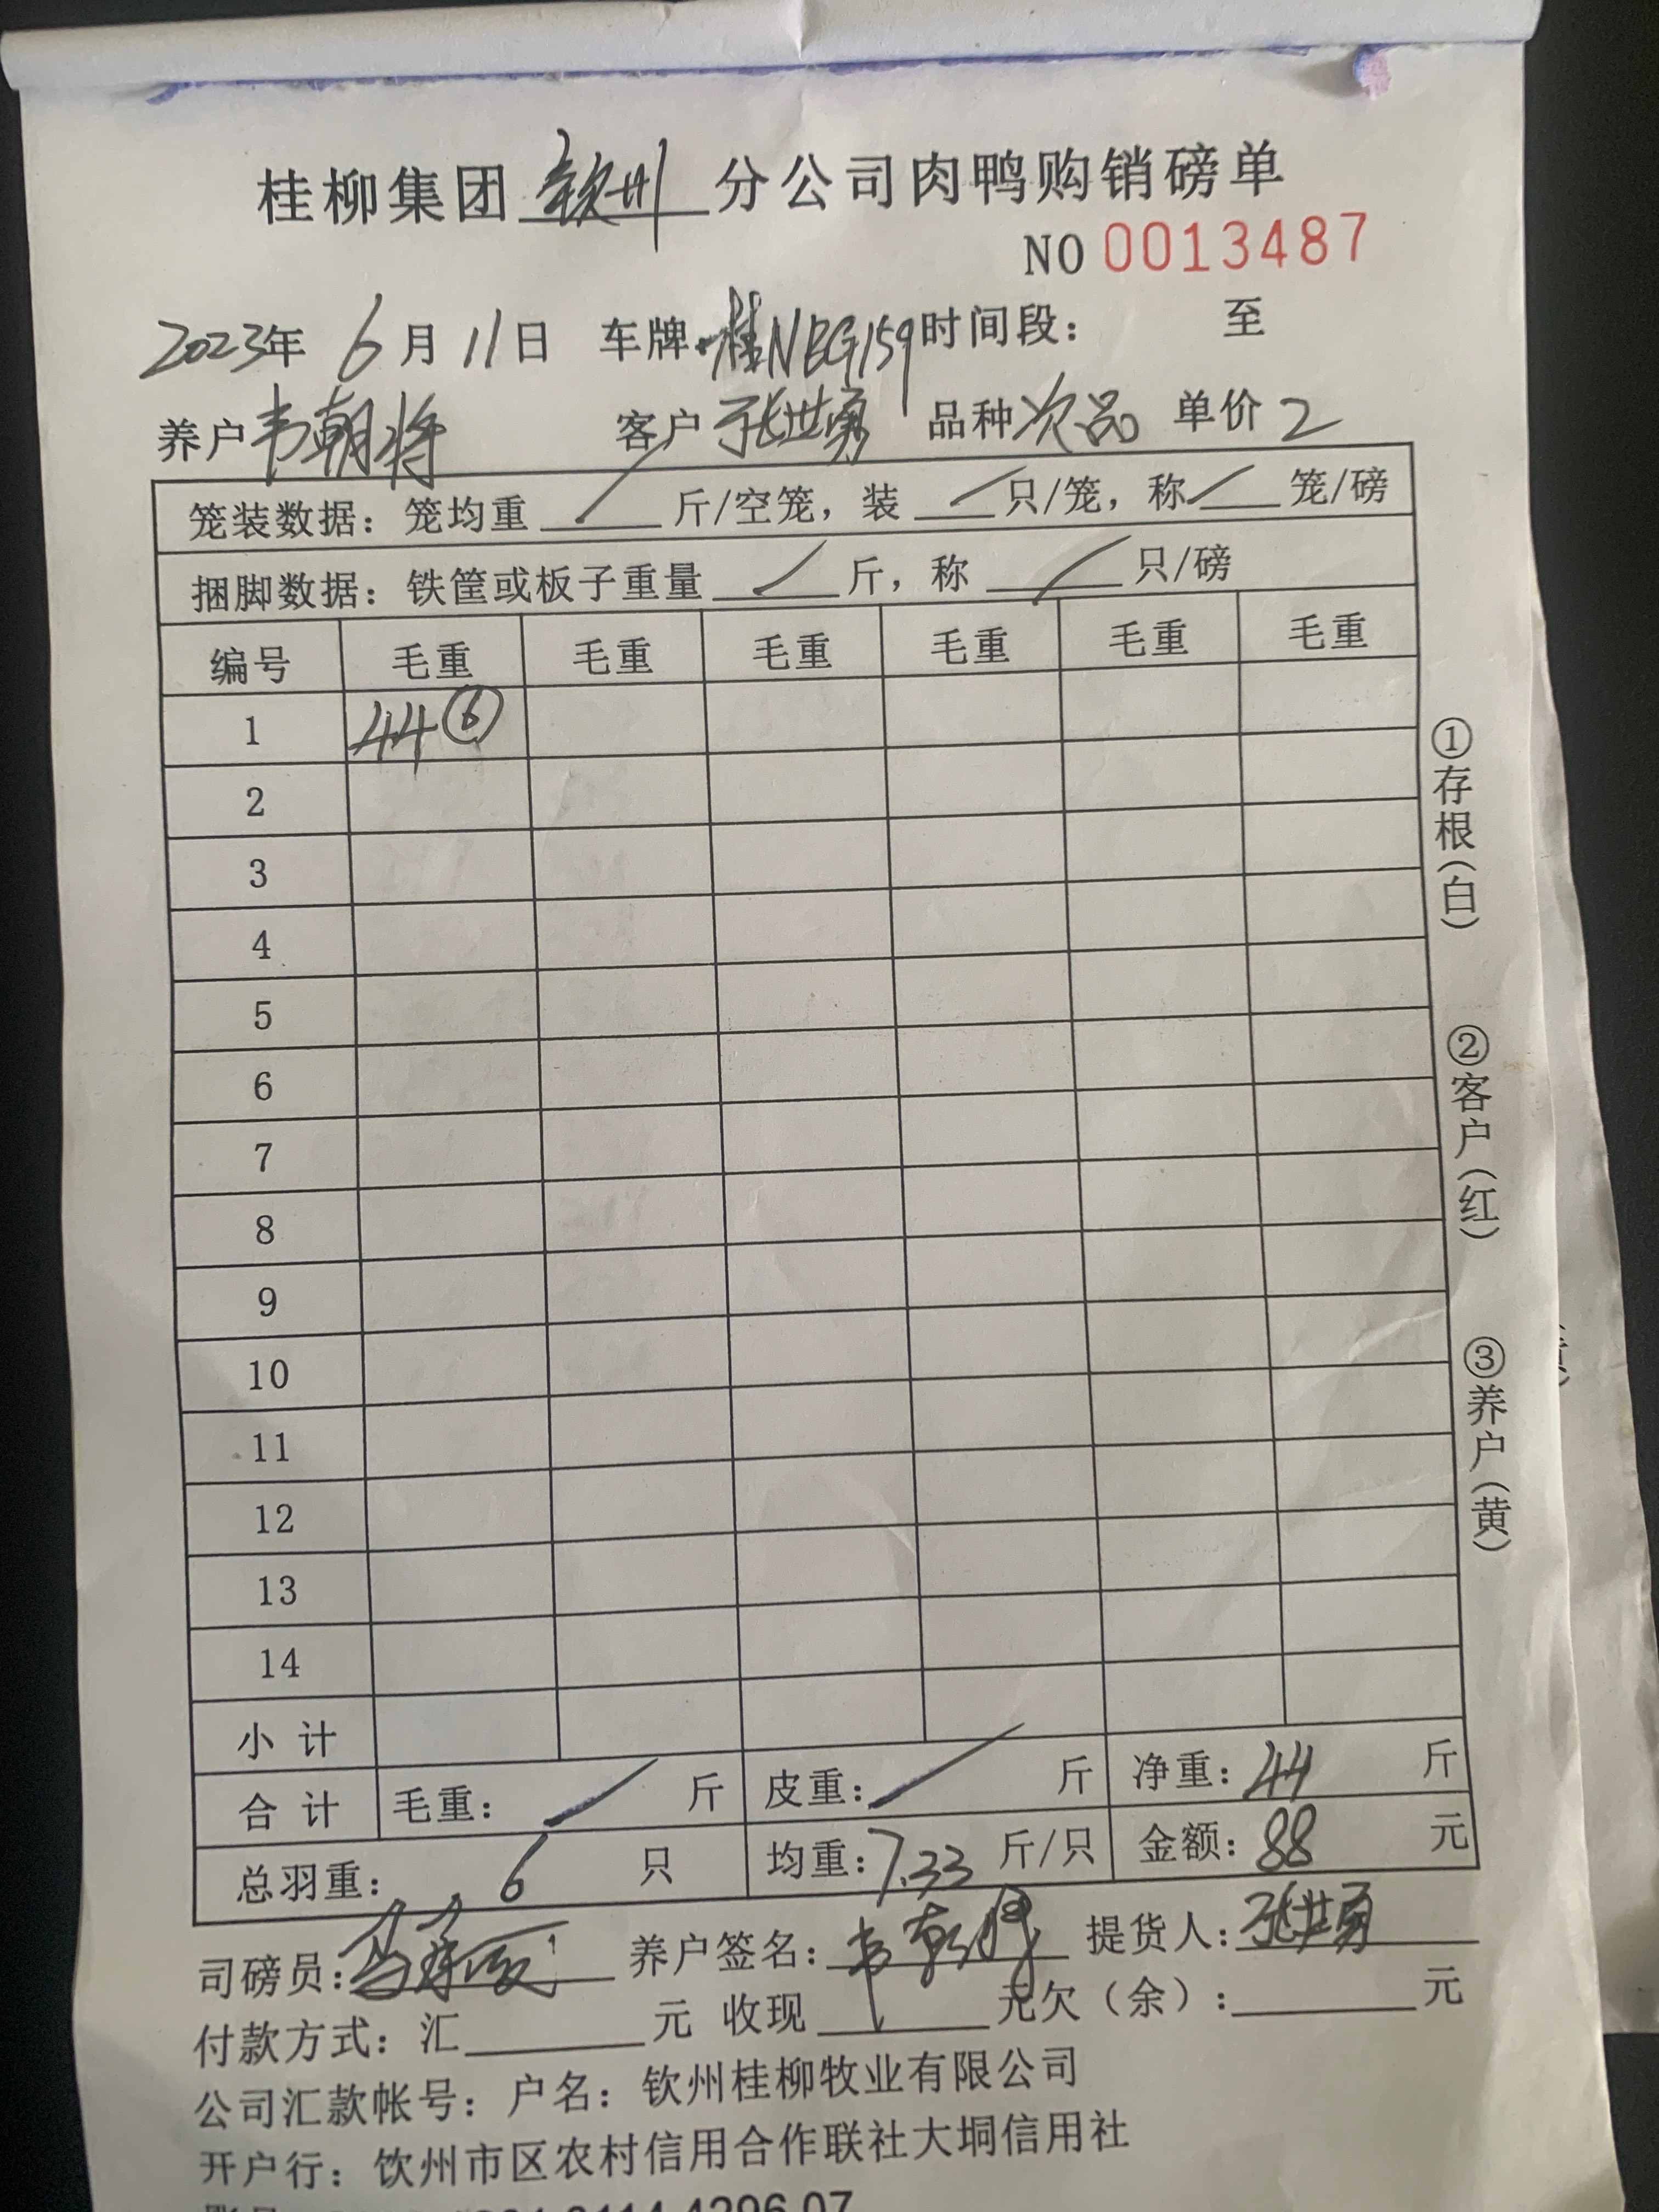 桂柳集团 钦州 分公司肉鸭购销磅单
NO 0013487
2023年 6月 11日 车牌 桂NEG159 时间段： 至
养户 韦朝将 客户 张世勇 品种 次品 单价 2
笼装数据：笼均重 / 斤/空笼，装 / 只/笼，称 / 笼/磅
捆脚数据：铁筐或板子重量 / 斤，称 / 只/磅
编号 毛重 毛重 毛重 毛重 毛重 毛重
1 44⑥
2
3
4
5
6
7
8
9
10
11
12
13
14
小计
合计 毛重： / 斤 皮重： / 斤 净重：44 斤
总羽重： 6 只 均重：7.33 斤/只 金额：88 元
司磅员： 养户签名：韦 提货人：张世勇
付款方式：汇 元 收现 元欠（余）： 元
公司汇款帐号：户名：钦州桂柳牧业有限公司
开户行：钦州市区农村信用合作联社大垌信用社
①存根（白）
②客户（红）
③养户（黄）